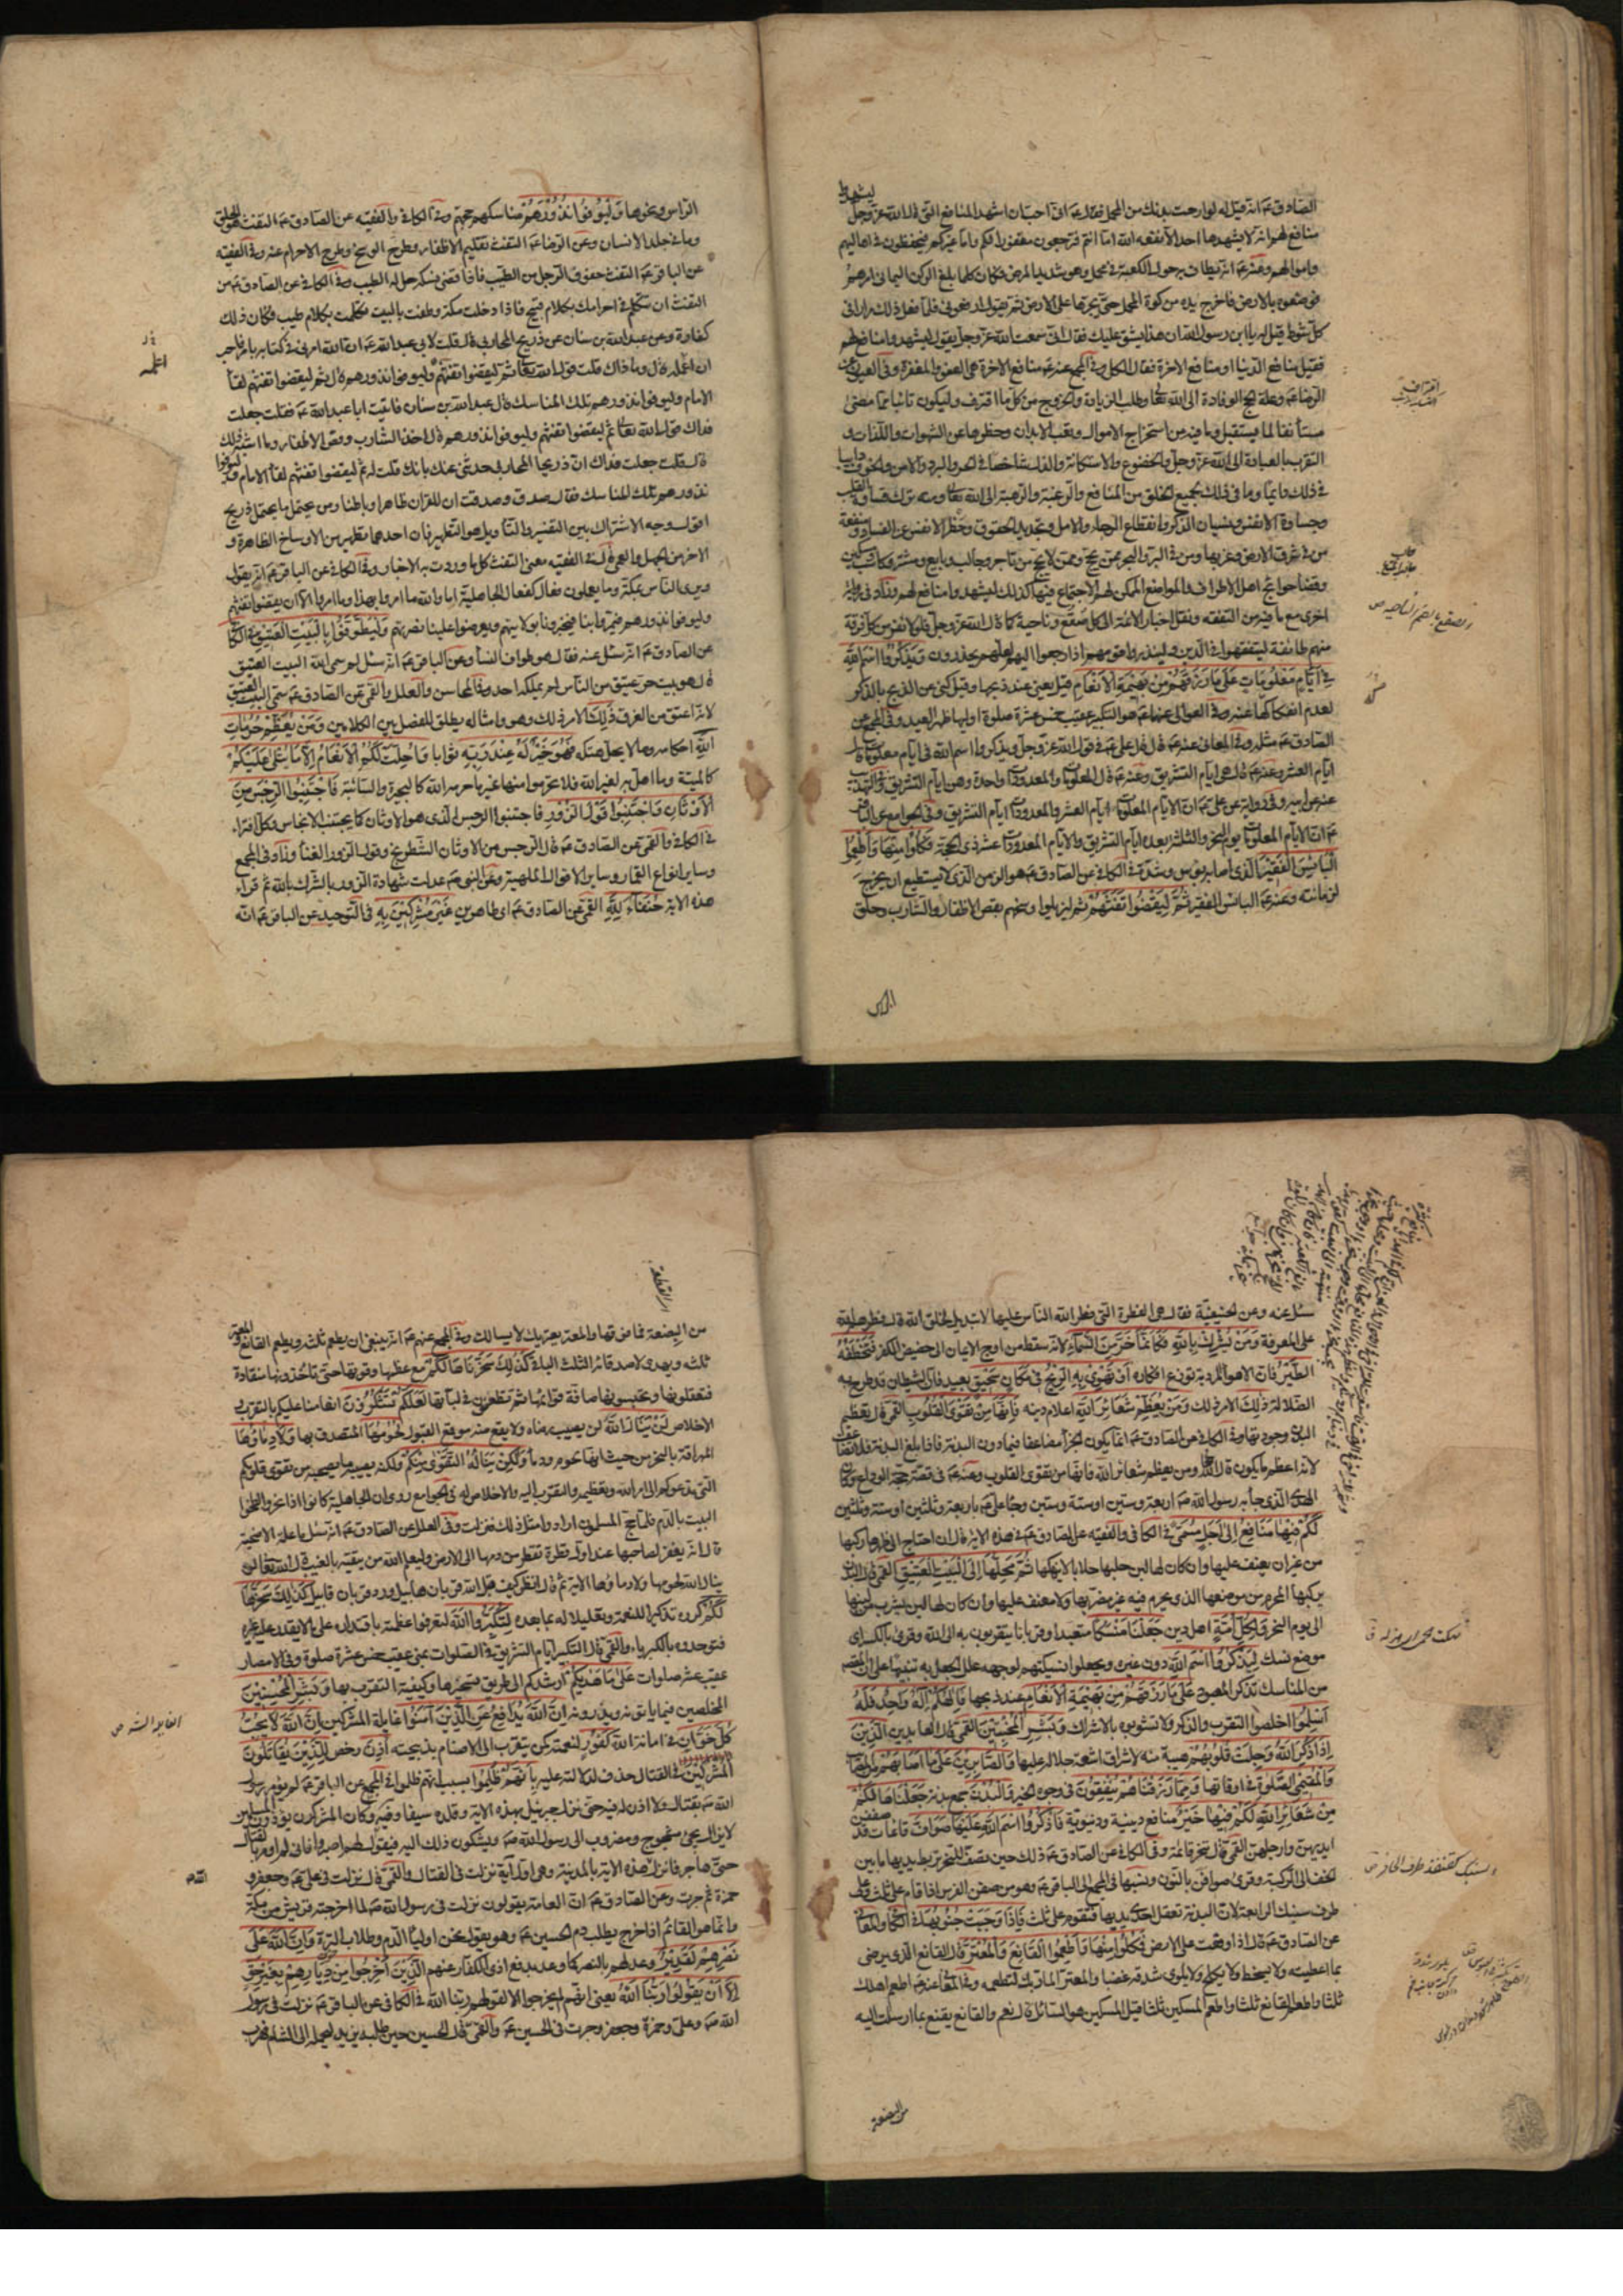 ليشهدوا
الصادق عۤ انه قيل له لو ارحت بدنك من المحمل فقال عۤ انى احب ان اشهد المنافع التى قال الله عز وجل
منافع لهم انه لا يشهدها احد الا نفعه الله اما انتم فترجعون مغفورا لكم واما غيركم فيحفظون فى اهاليهم
واموالهم وعنه عۤ انه يطاف به حول الكعبة فى محمل وهو شديد المرض فكان كلما بلغ الركن اليمانى امرهم
فوضعوه بالارض فاخرج يده من كوة المحمل حتى يجرها على الارض ثم يقول ارفعونى فلما فعل ذلك مرارا فى
كل شوط قيل له يا ابن رسول الله ان هذا يشق عليك فقال انى سمعت الله عز وجل يقول ليشهدوا منافع لهم
فقيل منافع الدنيا او منافع الاخرة فقال الكل وفى المجمع عنه عۤ منافع الاخرة هى العفو والمغفرة وفى العيون عن
الرضا عۤ وعلة الحج الوفادة الى الله تعالى وطلب الزيادة والخروج من كل ما اقترف وليكون تائبا مما مضى
مستأنفا لما يستقبل وما فيه من استخراج الاموال وتعب الابدان وحظرها عن الشهوات واللذات و
التقرب بالعبادة الى الله عز وجل والخضوع والاستكانة والذل شاخصا فى الحر والبرد والامن والخوف دايبا
فى ذلك دايما وما فى ذلك لجميع الخلق من المنافع والرغبة والرهبة الى الله تعالى ومنه ترك قساوة القلب
وجساوة الانفس ونسيان الذكر وانقطاع الرجاء والامل وتجديد الحقوق وحظر الانفس عن الفساد ومنفعة
من فى شرق الارض وغربها ومن فى البر والبحر ممن يحج وممن لا يحج من تاجر وجالب وبايع ومشتر وكاسب ومسكين
وقضاء حوائج اهل الاطراف والمواضع الممكن لهم الاجتماع فيها كذلك ليشهدوا منافع لهم وزاد فى رواية
اخرى مع ما فيه من التفقه ونقل اخبار الائمة الى كل صقع وناحية كما قال الله عز وجل فلولا نفر من كل فرقة
منهم طائفة ليتفقهوا فى الدين ولينذروا قومهم اذا رجعوا اليهم لعلهم يحذرون وَيَذْكُرُوا اسْمَ اللهِ
فِي أَيَّامٍ مَعْلُومَاتٍ عَلَى مَا رَزَقَهُمْ مِنْ بَهِيمَةِ الْأَنْعَامِ قيل يعنى عند ذبحها وقيل كنى عن الذبح بالذكر
لعدم انفكاكها عنه وفى العوالى عنهما عۤ هو التكبير عقيب خمس عشرة صلوة اولها ظهر العيد وفى المجمع عن
الصادق عۤ مثله وفى المعانى عنه عۤ قال قال على عۤ فى قول الله عز وجل ويذكروا اسم الله فى ايام معلومات قال
ايام العشر وعنه عۤ قال هى ايام التشريق وعنه عۤ قال المعلومات والمعدودات واحدة وهن ايام التشريق وفى التهذيب
عنه عن ابيه وفى رواية عن على عۤ ان الايام المعلومات ايام العشر والمعدودات ايام التشريق وفى الجوامع عن الباقر
عۤ ان الايام المعلومات يوم النحر والثلثة بعده ايام التشريق والايام المعدودات عشر ذى الحجة فَكُلُوا مِنْهَا وَأَطْعِمُوا
الْبَائِسَ الْفَقِيرَ الذى اصابه بؤس وشدة فى الكافى عن الصادق عۤ هو الزمن الذى لا يستطيع ان يخرج
لزمانته وعنه عۤ البائس الفقير ثُمَّ لْيَقْضُوا تَفَثَهُمْ ثم ليزيلوا وسخهم بقص الاظفار والشارب وحلق
الراس
الراس ونحوها وَلْيُوفُوا نُذُورَهُمْ مناسك حجهم وفى الكافى والفقيه عن الصادق عۤ التفث هو الحلق
وما فى جلد الانسان وعن الرضا عۤ التفث تقليم الاظفار وطرح الوسخ وطرح الاحرام عنه وفى الفقيه
عن الباقر عۤ التفث حفوف الرجل من الطيب فاذا قضى نسكه حل له الطيب وفى الكافى عن الصادق عۤ من
التفث ان تتكلم فى احرامك بكلام قبيح فاذا دخلت مكة وطفت بالبيت تكلمت بكلام طيب فكان ذلك
كفارة وعن عبد الله بن سنان عن ذريح المحاربى قال قلت لابى عبد الله عۤ ان الله امرنى فى كتابه بامر فاحب
ان اعمله قال وما ذاك قلت قول الله تعالى ثم ليقضوا تفثهم وليوفوا نذورهم قال ثم ليقضوا تفثهم لقاء
الامام وليوفوا نذورهم تلك المناسك قال عبد الله بن سنان فاتيت ابا عبد الله عۤ فقلت جعلت
فداك قول الله تعالى ثم ليقضوا تفثهم وليوفوا نذورهم قال اخذ الشارب وقص الاظفار وما اشبه ذلك
قال قلت جعلت فداك ان ذريحا المحاربى حدثنى عنك بانك قلت له ثم ليقضوا تفثهم لقاء الامام وليوفوا
نذورهم تلك المناسك فقال صدق وصدقت ان للقران ظاهرا وباطنا ومن يحتمل ما يحتمل ذريح
اقول وجه الاشتراك بين التفسير والتأويل هو التطهير فان احدهما تطهير من الاوساخ الظاهرة و
الاخر من الجهل والعمى قال فى الفقيه معنى التفث كل ما وردت به الاخبار وفى الكافى عن الباقر عۤ انه يقول
ويرى الناس بمكة وما يعملون فعال كفعال الجاهلية اما والله ما امروا بهذا وما امروا الا ان يقضوا تفثهم
وليوفوا نذورهم فيمروا بنا فيخبرونا بولايتهم ويعرضوا علينا نصرتهم وَلْيَطَّوَّفُوا بِالْبَيْتِ الْعَتِيقِ فى الكافى
عن الصادق عۤ انه سئل عنه فقال هو طواف النساء وعن الباقر عۤ انه سئل لم سمى الله البيت العتيق
قال هو بيت حر عتيق من الناس لم يملكه احد وفى المحاسن والعلل والقمى عن الصادق عۤ سمى البيت العتيق
لانه اعتق من الغرق ذَلِكَ الامر ذلك وهو وامثاله يطلق للفصل بين الكلامين وَمَنْ يُعَظِّمْ حُرُمَاتِ
اللهِ احكامه وما لا يحل هتكه فَهُوَ خَيْرٌ لَهُ عِنْدَ رَبِّهِ ثوابا وَأُحِلَّتْ لَكُمُ الْأَنْعَامُ إِلَّا مَا يُتْلَى عَلَيْكُمْ
كالميتة وما اهل به لغير الله فلا تحرموا منها غير ما حرمه الله كالبحيرة والسائبة فَاجْتَنِبُوا الرِّجْسَ مِنَ
الْأَوْثَانِ وَاجْتَنِبُوا قَوْلَ الزُّورِ فاجتنبوا الرجس الذى هو الاوثان كما يجتنب الانجاس وكل افتراء
فى الكافى والقمى عن الصادق عۤ قال الرجس من الاوثان الشطرنج وقول الزور الغناء وزاد فى المجمع
وساير انواع القمار وساير الاقوال الملهية وعن النبى صۤ عدلت شهادة الزور بالشرك بالله ثم قراء
هذه الاية حُنَفَاءَ لِلهِ القمى عن الصادق عۤ اى طاهرين غَيْرَ مُشْرِكِينَ بِهِ فى التوحيد عن الباقر عۤ انه
سئل عنه وعن الحنيفية فقال هى الفطرة التى فطر الله الناس عليها لا تبديل لخلق الله قال فطرهم الله
على المعرفة وَمَنْ يُشْرِكْ بِاللهِ فَكَأَنَّمَا خَرَّ مِنَ السَّمَاءِ لانه سقط من اوج الايمان الى حضيض الكفر فَتَخْطَفُهُ
الطَّيْرُ فان الاهواء المردية توزع افكاره أَوْ تَهْوِي بِهِ الرِّيحُ فِي مَكَانٍ سَحِيقٍ بعيد فان الشيطان قد طرح به
الضلالة ذَلِكَ الامر ذلك وَمَنْ يُعَظِّمْ شَعَائِرَ اللهِ اعلام دينه فَإِنَّهَا مِنْ تَقْوَى الْقُلُوبِ القمى قال تعظيم
البدن وجودتها وفى الكافى عن الصادق عۤ انما يكون الجزاء مضاعفا فيما دون البدنة فاذا بلغ البدنة فلا تضاعف
لانه اعظم ما يكون قال الله ومن يعظم شعائر الله فانها من تقوى القلوب وعنه عۤ فى قصة حجة الوداع وكان
الهدى الذى جاء به رسول الله صۤ اربعة وستين او ستة وستين وجاء على عۤ باربعة وثلثين او ستة وثلثين
لَكُمْ فِيهَا مَنَافِعُ إِلَى أَجَلٍ مُسَمًّى فى الكافى والفقيه عن الصادق عۤ فى هذه الاية قال ان احتاج الى ظهرها ركبها
من غير ان يعنف عليها وان كان لها لبن حلبها حلابا لا ينهكها ثُمَّ مَحِلُّهَا إِلَى الْبَيْتِ الْعَتِيقِ القمى قال البدن
يركبها المحرم من موضعها الذى يحرم فيه غير مضر بها ولا معنف عليها وان كان لها لبن يشرب من لبنها
الى يوم النحر وَلِكُلِّ أُمَّةٍ اهل دين جَعَلْنَا مَنْسَكًا متعبدا وقربانا يتقربون به الى الله وقرئ بالكسر اى
موضع نسك لِيَذْكُرُوا اسْمَ اللهِ دون غيره ويجعلوا نسيكتهم لوجهه علل الجعل به تنبيها على ان المقصود
من المناسك تذكر المعبود عَلَى مَا رَزَقَهُمْ مِنْ بَهِيمَةِ الْأَنْعَامِ عند ذبحها فَإِلَهُكُمْ إِلَهٌ وَاحِدٌ فَلَهُ
أَسْلِمُوا اخلصوا التقرب والذكر ولا تشوبوه بالاشراك وَبَشِّرِ الْمُخْبِتِينَ القمى قال العابدين الَّذِينَ
إِذَا ذُكِرَ اللهُ وَجِلَتْ قُلُوبُهُمْ هيبة منه لاشراق اشعة جلاله عليها وَالصَّابِرِينَ عَلَى مَا أَصَابَهُمْ من المصائب
وَالْمُقِيمِي الصَّلَوةِ فى اوقاتها وَمِمَّا رَزَقْنَاهُمْ يُنْفِقُونَ فى وجوه الخير وَالْبُدْنَ جمع بدنة جَعَلْنَاهَا لَكُمْ
مِنْ شَعَائِرِ اللهِ لَكُمْ فِيهَا خَيْرٌ منافع دينية ودنيوية فَاذْكُرُوا اسْمَ اللهِ عَلَيْهَا صَوَافَّ قائمات قد صففن
ايديهن وارجلهن القمى قال تنحر قائمة وفى الكافى عن الصادق عۤ ذلك حين تصف للنحر تربط يديها ما بين
الخف الى الركبة وقرئ صوافن بالنون ونسبها فى المجمع الى الباقر عۤ وهو من صفن الفرس اذا قام على ثلث وعلى
طرف سنبك الرابعة لان البدنة تعقل احدى يديها فتقوم على ثلث فَإِذَا وَجَبَتْ جُنُوبُهَا فى الكافى والمعانى
عن الصادق عۤ قال اذا وقعت على الارض فَكُلُوا مِنْهَا وَأَطْعِمُوا الْقَانِعَ وَالْمُعْتَرَّ قال القانع الذى يرضى
بما اعطيته ولا يسخط ولا يكلح ولا يلوى شدقه غضبا والمعتر المار بك لتطعمه وفى المعانى عنه عۤ اطعم اهلك
ثلثا واطعم القانع ثلثا واطعم المسكين ثلثا قيل المسكين هو السائل قال نعم والقانع يقنع بما ارسلت اليه
من البضعة
من البضعة فما فوقها والمعتر يعتريك لا يسالك وفى المجمع عنهم عۤ انه ينبغى ان يطعم ثلثه ويطعم القانع والمعتر
ثلثه ويهدى لاصدقائه الثلث الباقى كَذَلِكَ سَخَّرْنَاهَا لَكُمْ مع عظمها وقوتها حتى تاخذونها منقادة
فتعقلونها وتحبسونها صافة قوائمها ثم تطعنون فى لباتها لَعَلَّكُمْ تَشْكُرُونَ انعامنا عليكم بالتقرب و
الاخلاص لَنْ يَنَالَ اللهَ لن يصيب رضاه ولا يقع منه موقع القبول لُحُومُهَا المتصدق بها وَلَا دِمَاؤُهَا
المهراقة بالنحر من حيث انها لحوم ودماء وَلَكِنْ يَنَالُهُ التَّقْوَى مِنْكُمْ ولكنه يصيبه ما يصحبه من تقوى قلوبكم
التى تدعوكم الى امر الله وتعظيمه والتقرب اليه والاخلاص له فى الجوامع روى ان الجاهلية كانوا اذا نحروا لطخوا
البيت بالدم فلما حج المسلمون ارادوا مثل ذلك فنزلت وفى العلل عن الصادق عۤ انه سئل ما علة الاضحية
قال انه يغفر لصاحبها عند اول قطرة تقطر من دمها الى الارض وليعلم الله من يتقيه بالغيب قال الله تعالى لن
ينال الله لحومها ولا دماؤها الاية ثم قال انظر كيف قبل الله قربان هابيل ورد قربان قابيل كَذَلِكَ سَخَّرَهَا
لَكُمْ كرره تذكيرا للنعمة وتعليلا له بما بعده لِتُكَبِّرُوا اللهَ لتعرفوا عظمته باقتداره على ما لا يقدر عليه غيره
فتوحدوه بالكبرياء والقمى قال التكبير ايام التشريق فى الصلوات بمنى عقيب خمس عشرة صلوة وفى الامصار
عقيب عشر صلوات عَلَى مَا هَدَيكُمْ ارشدكم الى طريق تسخيرها وكيفية التقرب بها وَبَشِّرِ الْمُحْسِنِينَ
المخلصين فيما ياتونه ويذرونه إِنَّ اللهَ يُدَافِعُ عَنِ الَّذِينَ آمَنُوا غايلة المشركين إِنَّ اللهَ لَا يُحِبُّ
كُلَّ خَوَّانٍ فى امانة الله كَفُورٍ لنعمته كمن يتقرب الى الاصنام بذبيحته أُذِنَ رخص لِلَّذِينَ يُقَاتَلُونَ
المشركين فى القتال حذف لدلالته عليه بِأَنَّهُمْ ظُلِمُوا بسبب انهم ظلموا فى المجمع عن الباقر عۤ لم يؤمر رسول
الله صۤ بقتال ولا اذن له فيه حتى نزل جبرئيل بهذه الاية وقلده سيفا وفيه وكان المشركون يؤذون المسلمين
لا يزال يجئ مشجوج ومضروب الى رسول الله صۤ ويشكون ذلك اليه فيقول لهم اصبروا فانى لم اومر بالقتال
حتى هاجر فانزل هذه الاية بالمدينة وهى اول آية نزلت فى القتال والقمى قال نزلت فى على عۤ وجعفر و
حمزة ثم جرت وعن الصادق عۤ ان العامة يقولون نزلت فى رسول الله صۤ لما اخرجته قريش من مكة
وانما هو القائم اذا خرج يطلب بدم الحسين عۤ وهو يقول نحن اولياء الدم وطلاب الترة وَإِنَّ اللهَ عَلَى
نَصْرِهِمْ لَقَدِيرٌ وعد لهم بالنصر كما وعد بدفع اذى الكفار عنهم الَّذِينَ أُخْرِجُوا مِنْ دِيَارِهِمْ بِغَيْرِ حَقٍّ
إِلَّا أَنْ يَقُولُوا رَبُّنَا اللهُ يعنى انهم لم يخرجوا الا لقولهم ربنا الله فى الكافى عن الباقر عۤ نزلت فى رسول
الله صۤ وعلى وحمزة وجعفر وجرت فى الحسين عۤ والقمى قال الحسين حين طلبه يزيد ليحمله الى الشام فهرب